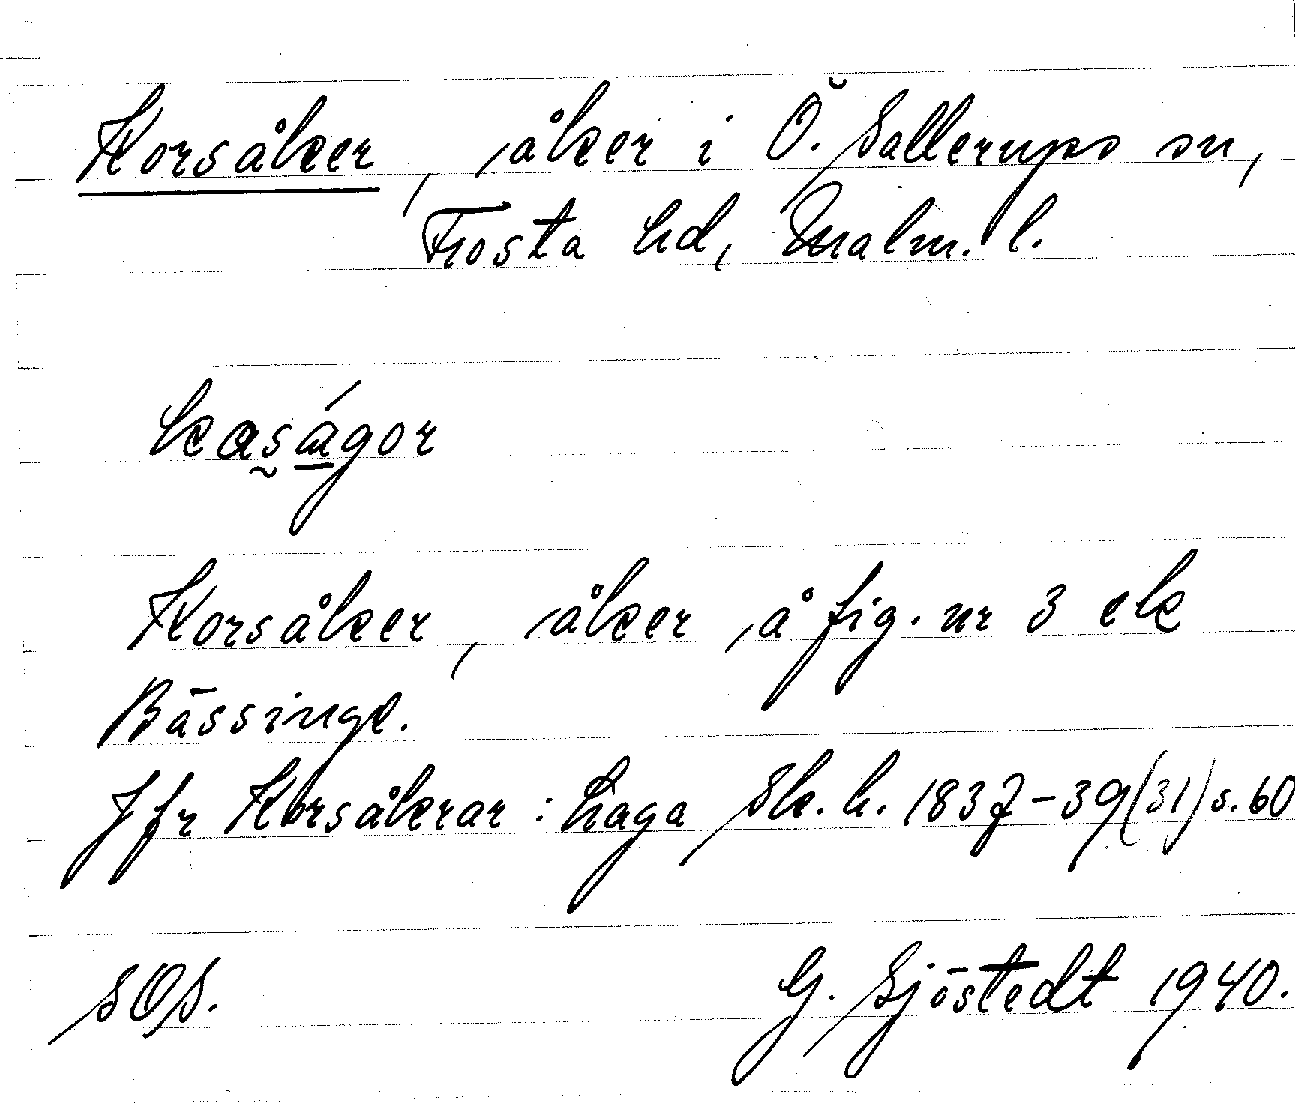 Korsåker, åker i Ö. Sallerups sn,
Frosta hd, Malm. l.
kaságor
Korsåker, åker å fig. nr 3 ek
Bässinge.
Jfr Korsåkrar: haga Sk. h. 1837-39 (31) s. 60
SOS.
G. Sjöstedt 1940.